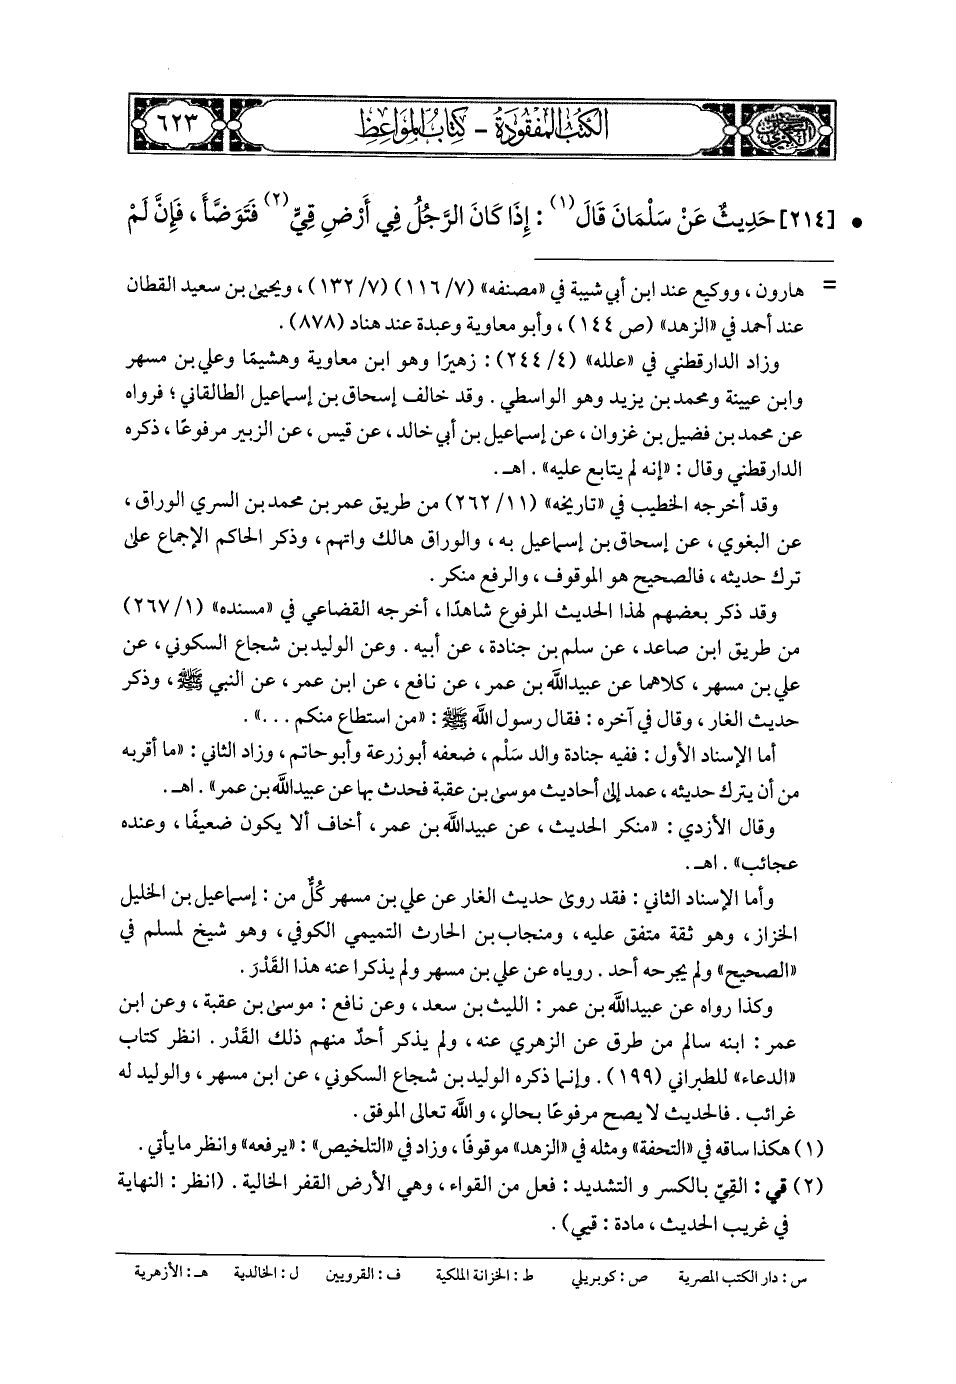 الكتب المفقودة - كتاب المواعظ
٦٢٣
• [٢١٤] حَدِيثٌ عَنْ سَلْمَانَ قَالَ (١) : إِذَا كَانَ الرَّجُلُ فِي أَرْضِ قِيٍّ (٢) فَتَوَضَّأَ ، فَإِنَّ لَمْ
= هارون ، ووكيع عند ابن أبي شيبة في «مصنفه» (٧/ ١١٦) (٧/ ١٣٢) ، ويحيى بن سعيد القطان
عند أحمد في «الزهد» (ص ١٤٤) ، وأبو معاوية وعبدة عند هناد (٨٧٨) .
وزاد الدارقطني في «علله» (٤/ ٢٤٤) : زهيرًا وهو ابن معاوية وهشيمًا وعلي بن مسهر
وابن عيينة ومحمد بن يزيد وهو الواسطي . وقد خالف إسحاق بن إسماعيل الطالقاني ؛ فرواه
عن محمد بن فضيل بن غزوان ، عن إسماعيل بن أبي خالد ، عن قيس ، عن الزبير مرفوعًا ، ذكره
الدارقطني وقال : «إنه لم يتابع عليه» . اهـ .
وقد أخرجه الخطيب في «تاريخه» (١١/ ٢٦٢) من طريق عمر بن محمد بن السري الوراق ،
عن البغوي ، عن إسحاق بن إسماعيل به ، والوراق هالك واتهم ، وذكر الحاكم الإجماع على
ترك حديثه ، فالصحيح هو الموقوف ، والرفع منكر .
وقد ذكر بعضهم لهذا الحديث المرفوع شاهدًا ، أخرجه القضاعي في «مسنده» (١/ ٢٦٧)
من طريق ابن صاعد ، عن سلم بن جنادة ، عن أبيه . وعن الوليد بن شجاع السكوني ، عن
علي بن مسهر ، كلاهما عن عبيدالله بن عمر ، عن نافع ، عن ابن عمر ، عن النبي ﷺ ، وذكر
حديث الغار ، وقال في آخره : فقال رسول الله ﷺ : «من استطاع منكم . . .» .
أما الإسناد الأول : ففيه جنادة والد سَلْم ، ضعفه أبو زرعة وأبو حاتم ، وزاد الثاني : «ما أقربه
من أن يترك حديثه ، عمد إلى أحاديث موسى بن عقبة فحدث بها عن عبيدالله بن عمر» . اهـ .
وقال الأزدي : «منكر الحديث ، عن عبيدالله بن عمر ، أخاف ألا يكون ضعيفًا ، وعنده
عجائب» . اهـ .
وأما الإسناد الثاني : فقد روى حديث الغار عن علي بن مسهر كُلٌّ من : إسماعيل بن الخليل
الخزاز ، وهو ثقة متفق عليه ، ومنجاب بن الحارث التميمي الكوفي ، وهو شيخ لمسلم في
«الصحيح» ولم يجرحه أحد . روياه عن علي بن مسهر ولم يذكرا عنه هذا القَدْر .
وكذا رواه عن عبيدالله بن عمر : الليث بن سعد ، وعن نافع : موسى بن عقبة ، وعن ابن
عمر : ابنه سالم من طرق عن الزهري عنه ، ولم يذكر أحدٌ منهم ذلك القَدْر . انظر كتاب
«الدعاء» للطبراني (١٩٩) . وإنما ذكره الوليد بن شجاع السكوني ، عن ابن مسهر ، والوليد له
غرائب . فالحديث لا يصح مرفوعًا بحالٍ ، والله تعالى الموفق .
(١) هكذا ساقه في «التحفة» ومثله في «الزهد» موقوفًا ، وزاد في «التلخيص» : «يرفعه» وانظر ما يأتي .
(٢) قي : القِيّ بالكسر و التشديد : فعل من القواء ، وهي الأرض القفر الخالية . (انظر : النهاية
في غريب الحديث ، مادة : قيي) .
س : دار الكتب المصرية ص : كوبريلي ط : الخزانة الملكية ف : القرويين ل : الخالدية هـ : الأزهرية